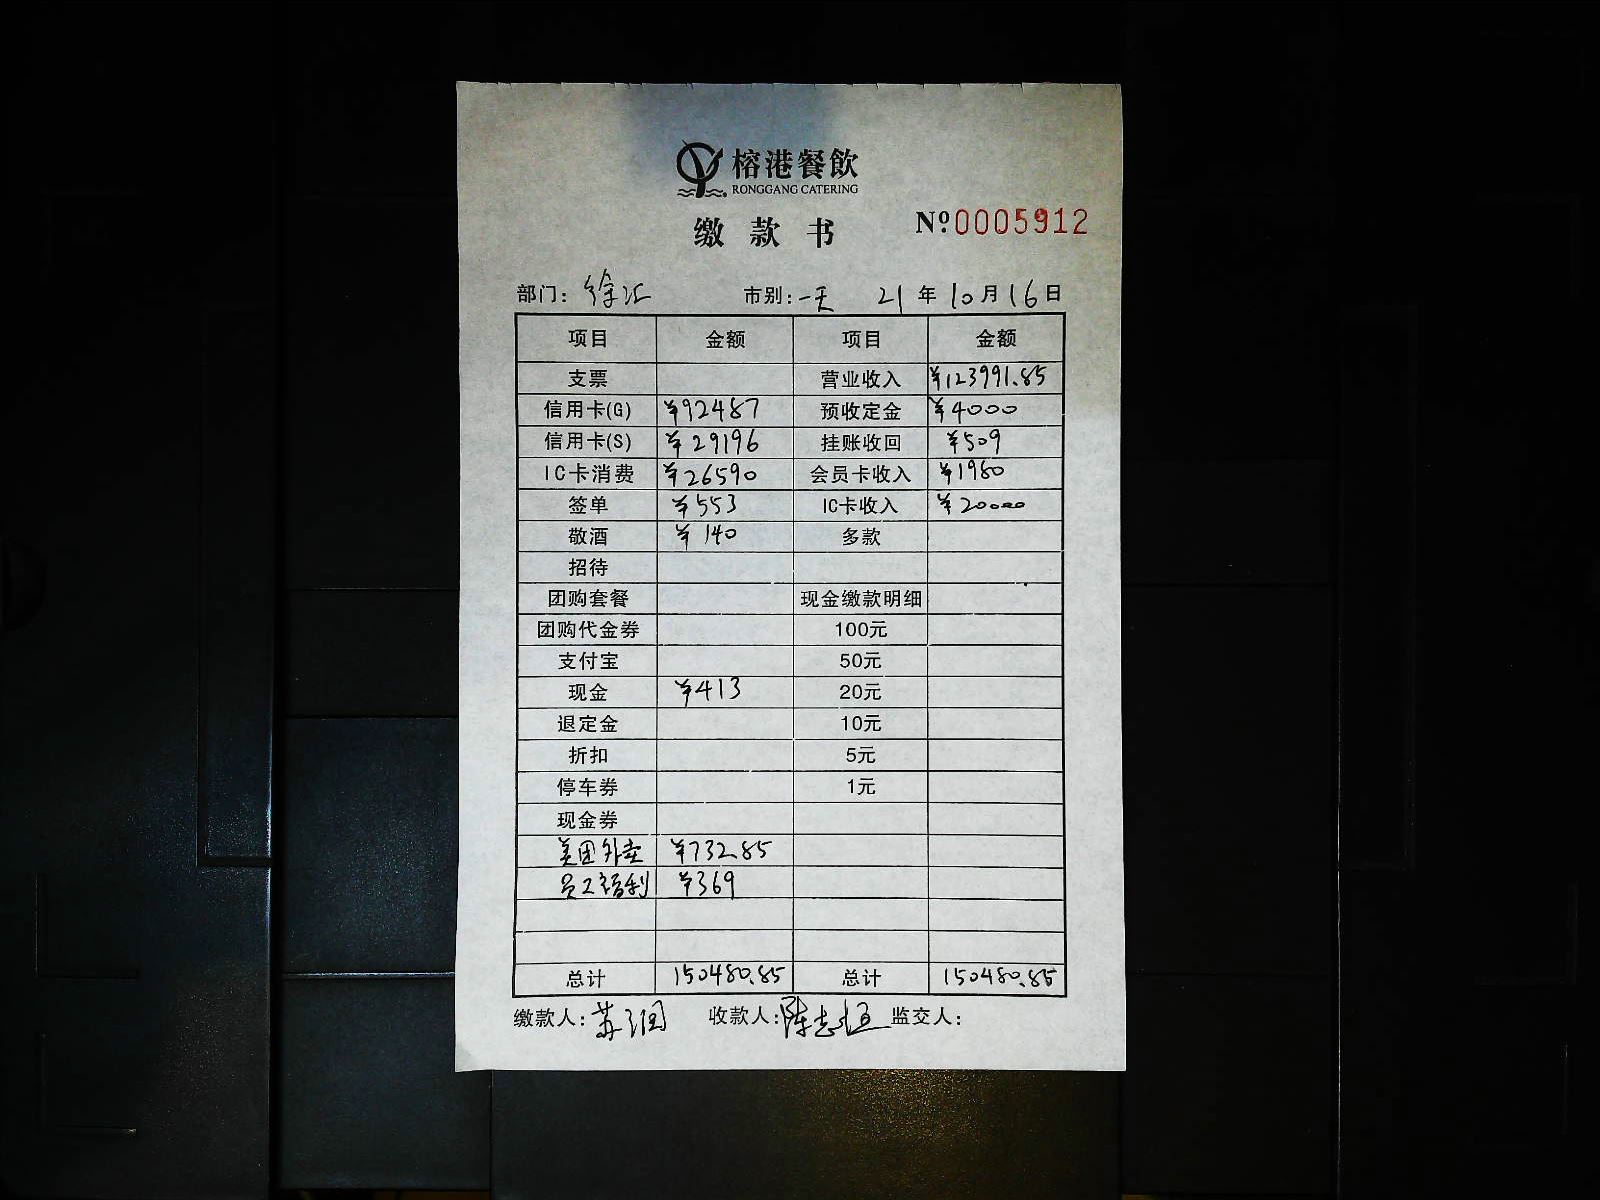 榕港餐飲
RONGGANG CATERING
缴款书 Nº 0005912
部门: 徐汇 市别: 一天 21年10月16日
项目 金额 项目 金额
支票 营业收入 ¥123991.85
信用卡(G) ¥92487 预收定金 ¥4000
信用卡(S) ¥29196 挂账收回 ¥509
IC卡消费 ¥26590 会员卡收入 ¥1980
签单 ¥553 IC卡收入 ¥20000
敬酒 ¥140 多款
招待
团购套餐 现金缴款明细
团购代金券 100元
支付宝 50元
现金 ¥413 20元
退定金 10元
折扣 5元
停车券 1元
现金券
美团外卖 ¥732.85
员工福利 ¥369
总计 150480.85 总计 150480.85
缴款人: 苏润 收款人: 陈志恒 监交人: